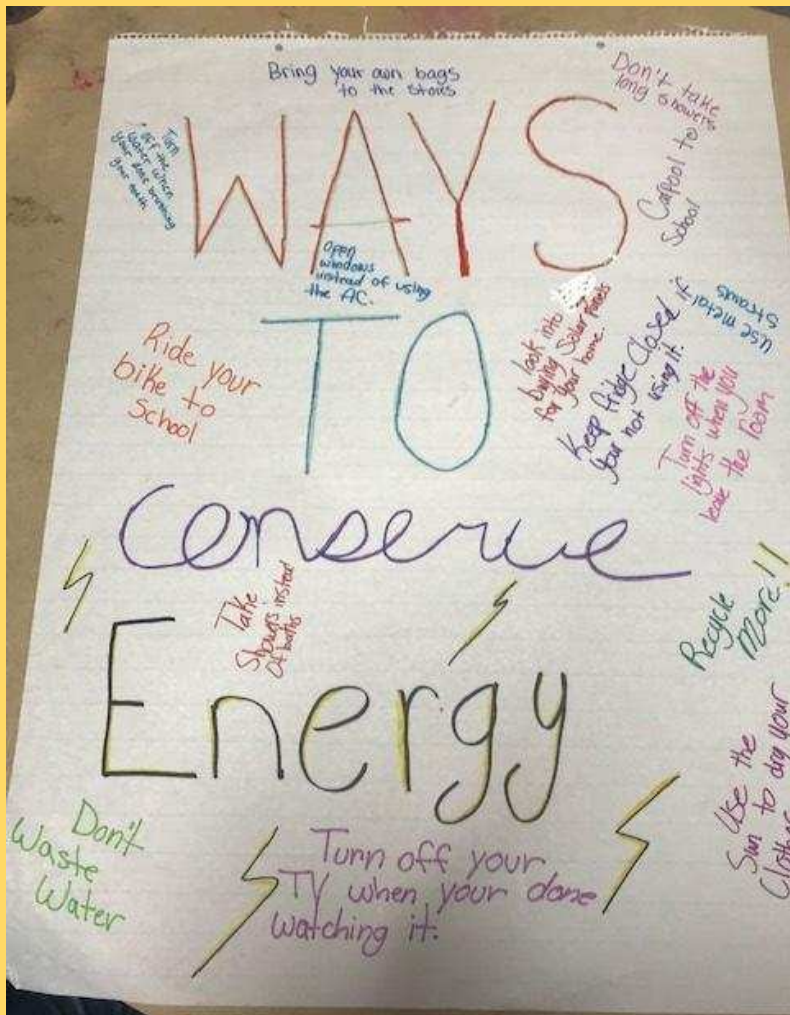 Bring your own bags
to the stores
Don't take
long showers
Turn
off the
water when
your done brushing
your teeth
WAYS
Carpool to
School
Open
windows
instead of using
the AC.
TO
look into
buying Solar panels
for your home.
Keep fridge closed if
your not using it.
use metal
straws
Ride your
bike to
school
Turn off the
lights when you
leave the room
Conserve
Take
Showers instead
Of baths
Recycle
More!!
Energy
Use the
Sun to dry your
Clothes
Don't
Waste
Water
Turn off your
TV when your done
watching it.